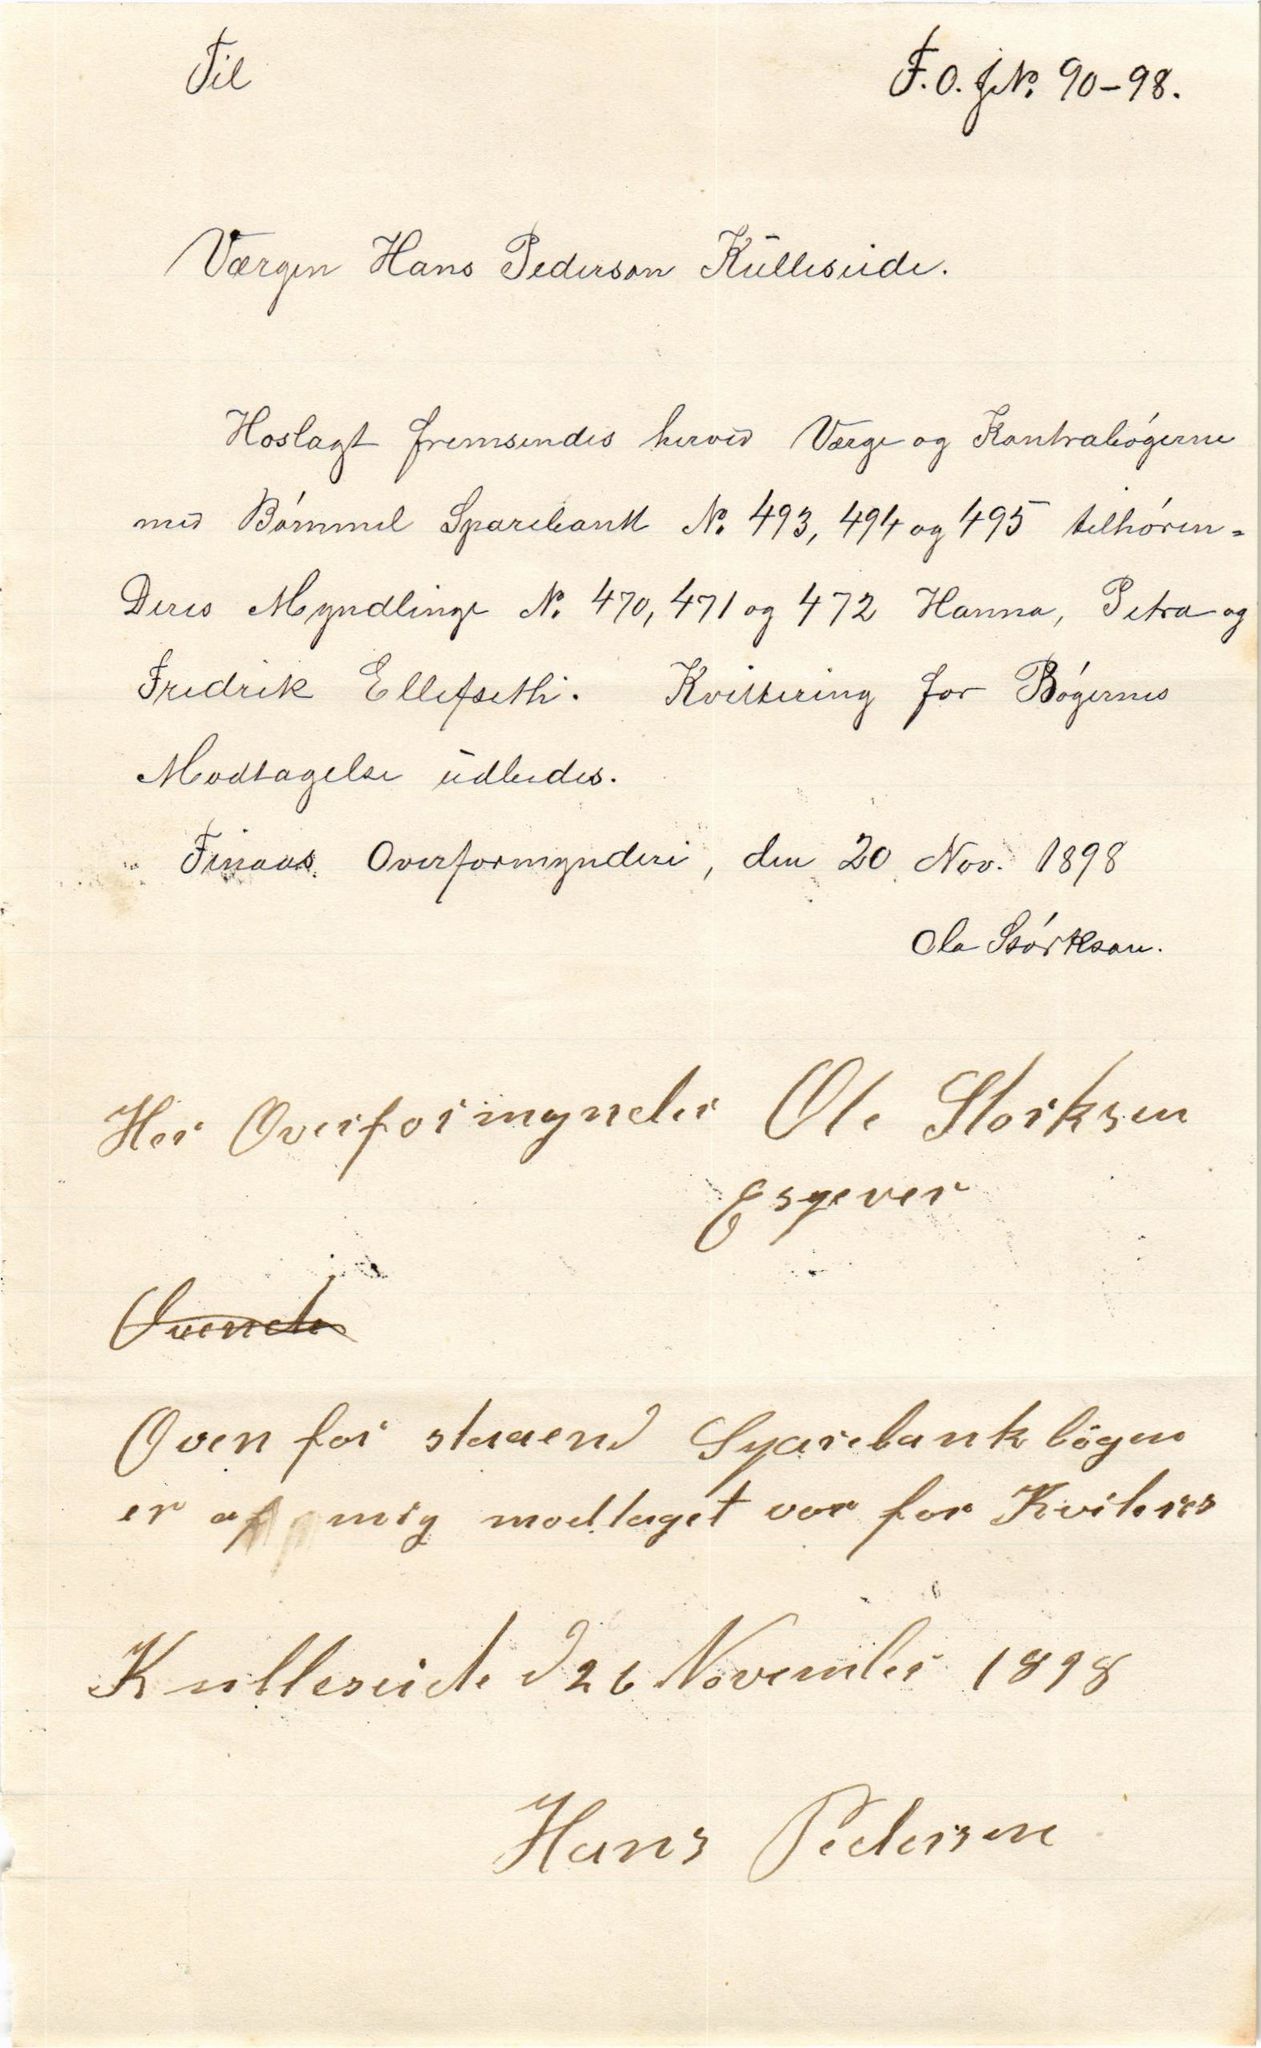 Til
F. O. JNo. 90-98.
Værgen Hans Pederson Külleseide.
Hoslagt fremsendes herved Værge og Kontrabógerne
med Bómmel Sparebank No. 493, 494 og 495 tilhóren-
Deres Myndlinge No. 470, 471 og 472 Hanna, Petra og
Fredrik Ellefseth. Kvittering for Bógernes
Modtagelse üdbedes.
Finaas Overformynderi, den 20 Nov. 1898
Ole Stórkson.
Her Overformynder Ole Storksen
Espever
Ovende
Oven for staaend Sparebank bögen
er af mig modtaget vor for Kviteres
Kulleseide d 26 November 1898
Hans Pedersen